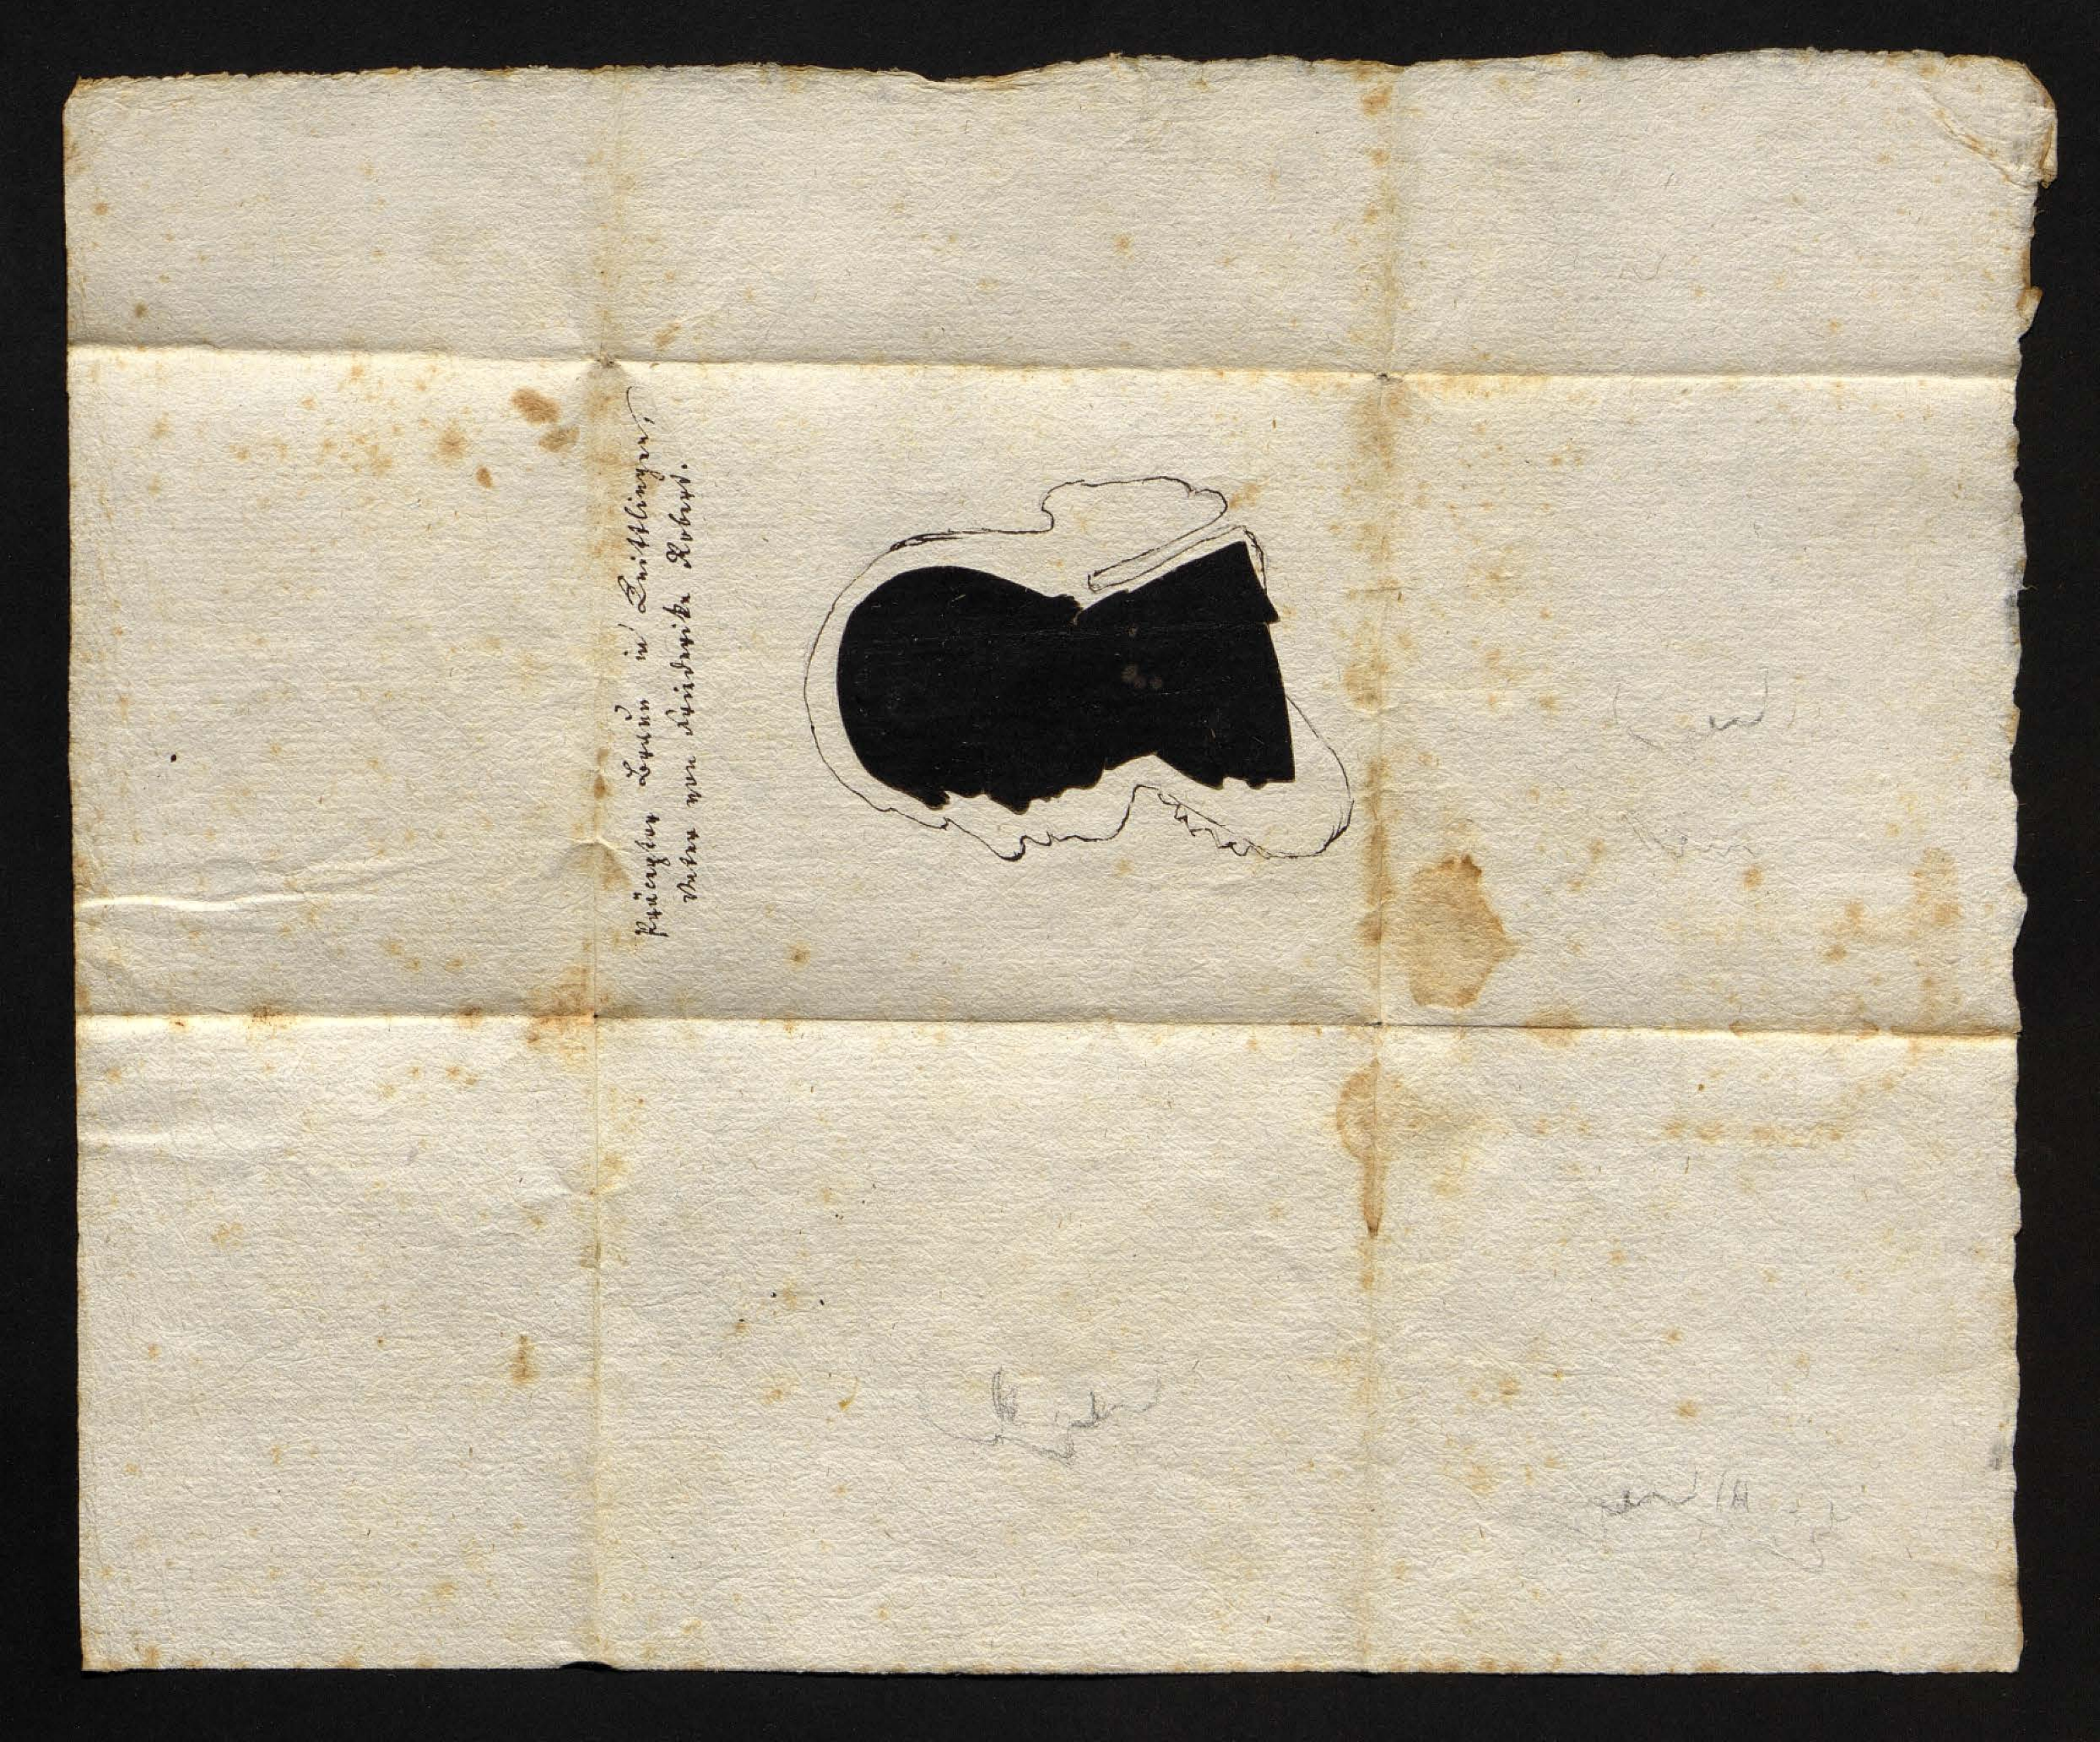 Präceptor Braun in Knittlingen,
Vater von Friederike Robert.